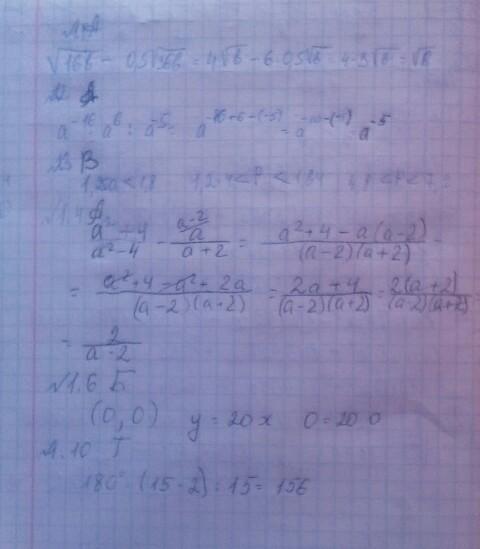 √16b - 0,5√36b = 4√b - 6·0,5√b = 4-3√b = √b
a⁻¹⁶ · a⁶ : a⁻⁵ = a⁻¹⁶⁺⁶⁻⁽⁻⁵⁾ = a⁻¹⁰⁻⁽⁻⁵⁾ = a⁻⁵
В
√1.4 А
(a² + 4)/(a² - 4) - ((a-2)/a)/(a + 2) = (a² + 4 - a(a-2))/((a-2)(a+2)) =
= (a² + 4 - a² + 2a)/((a-2)(a+2)) = (2a + 4)/((a-2)(a+2)) = 2(a+2)/((a-2)(a+2)) =
= 2/(a-2)
√1.6 Б
(0,0) y = 20x 0 = 20·0
1.10 Г
180° · (15-2) : 15 = 156